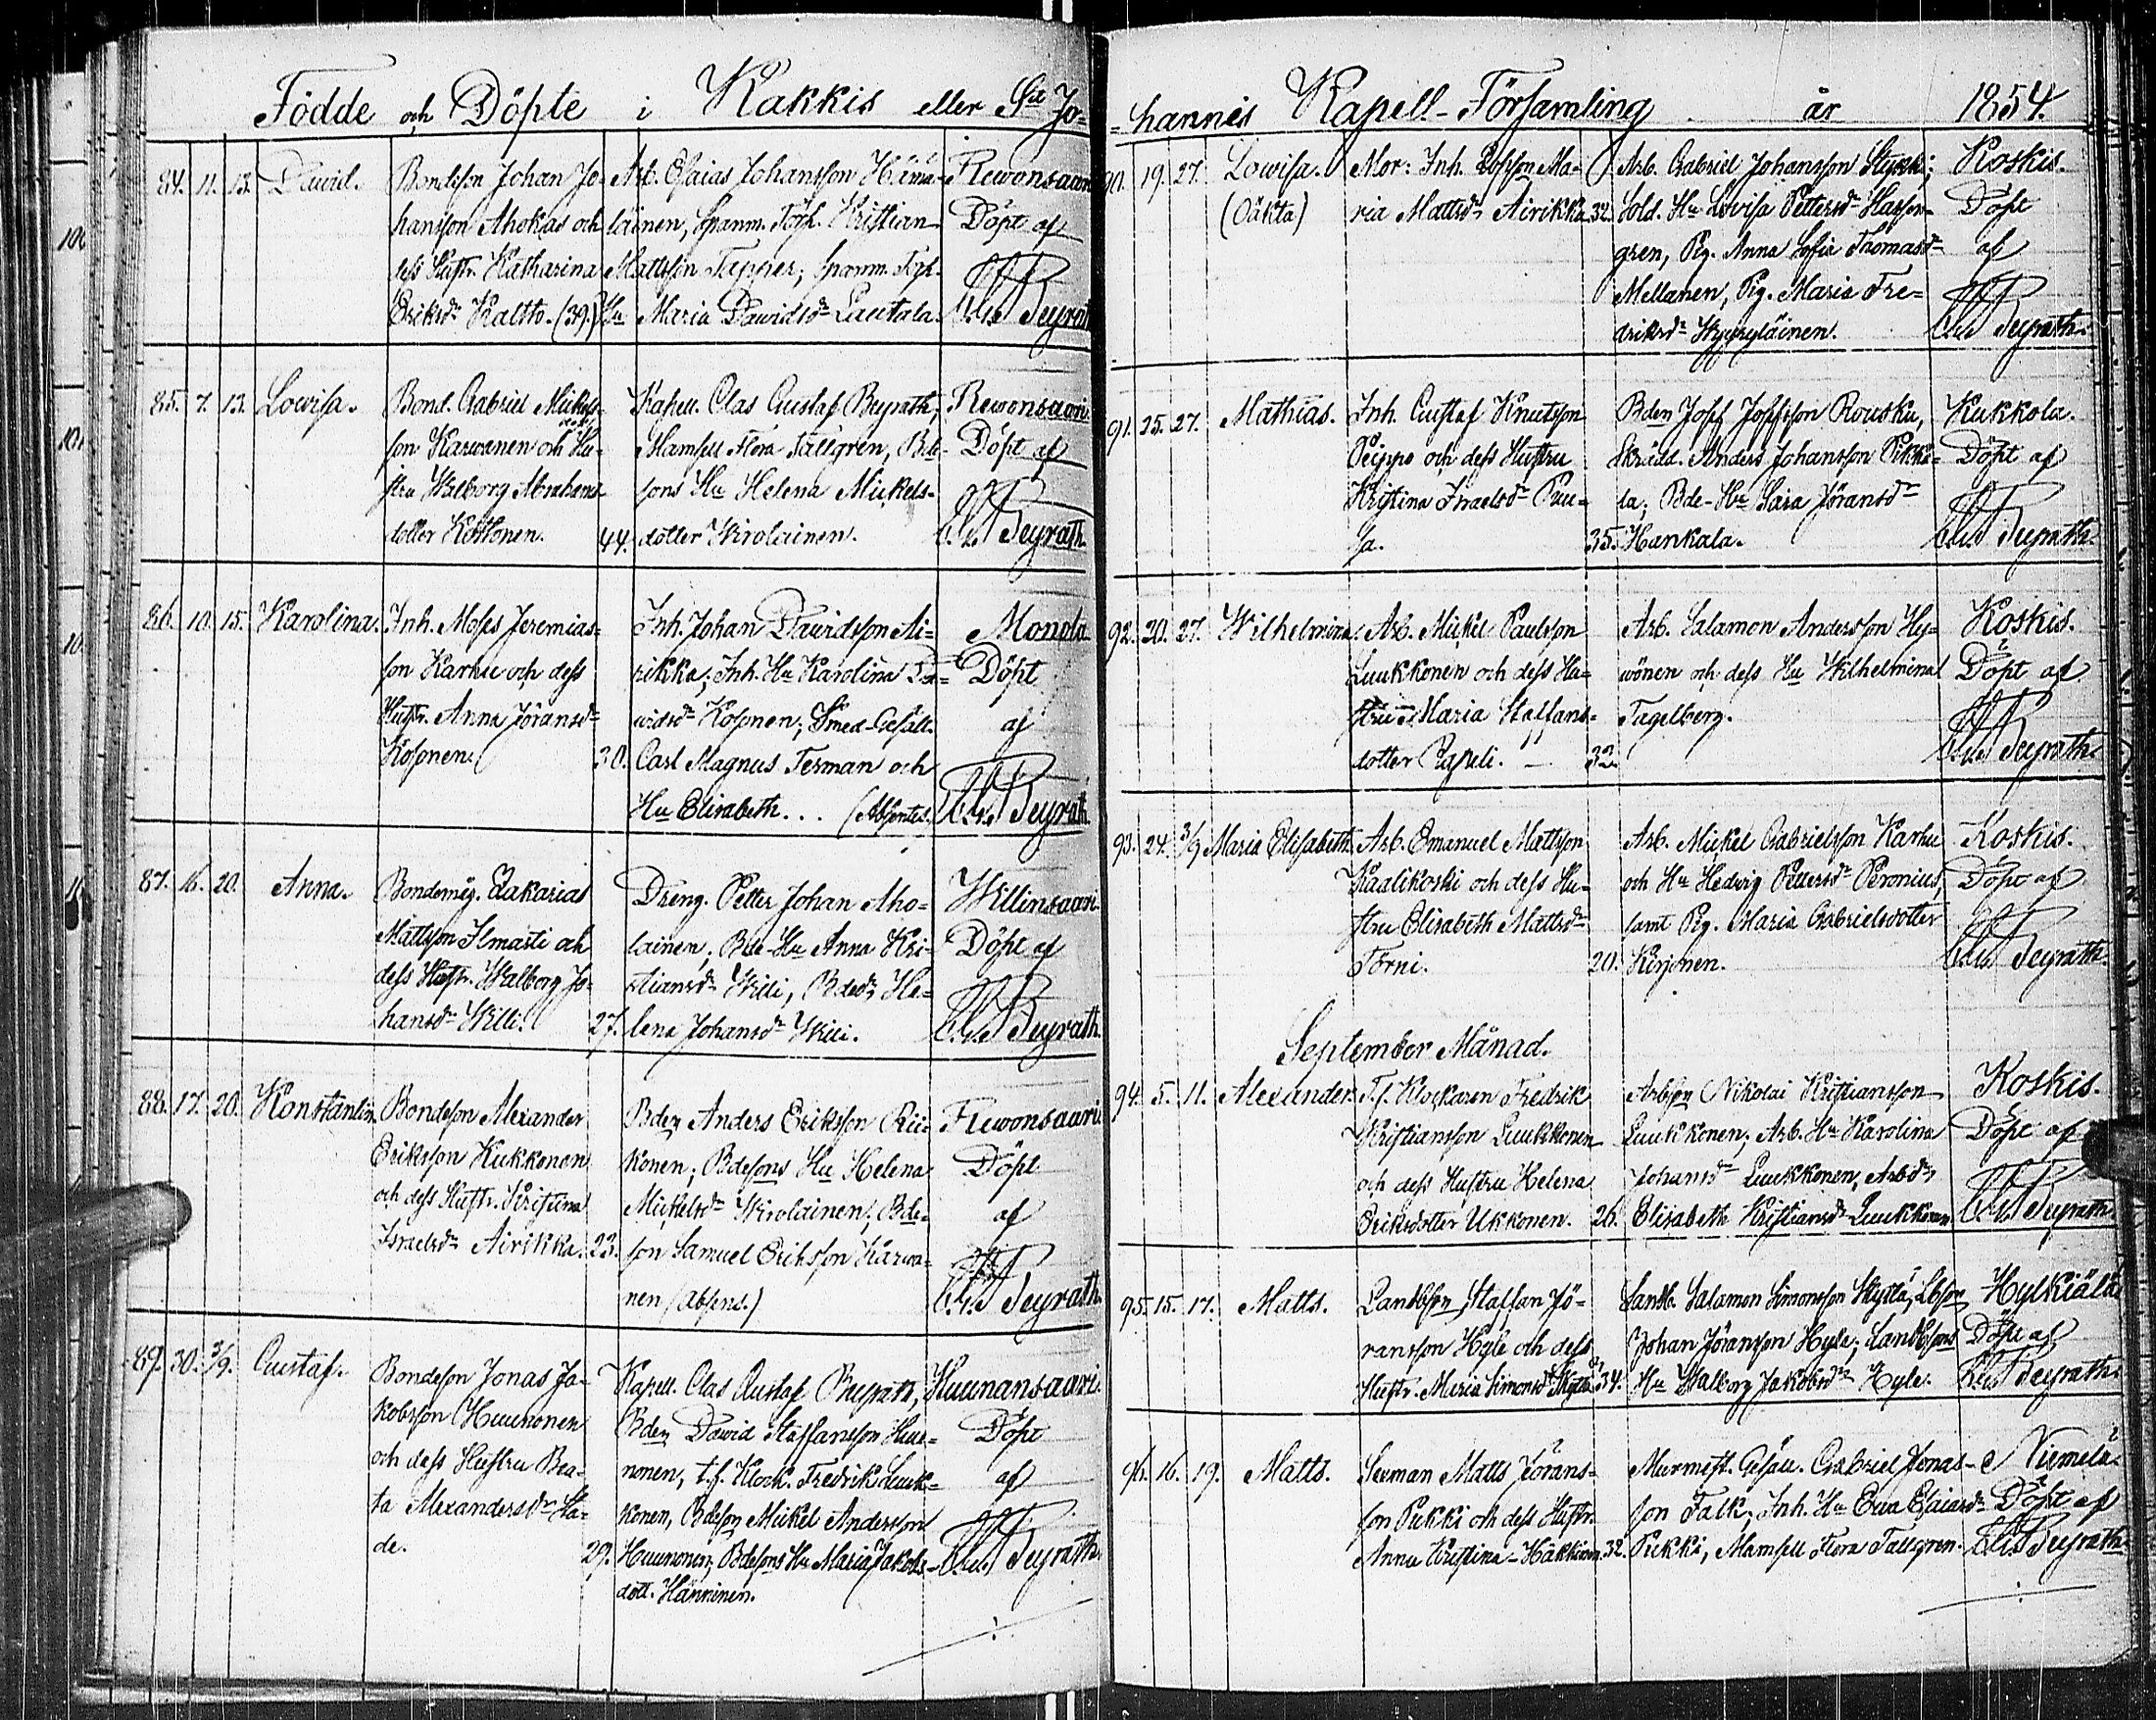 Födde och Döpte i Kakkis eller S:t Jo-
84. 11. 13. David. Bondeson Johan Jo-
hansson Ahokas och
dess Hustr. Katharina
Eriksdr Kaltto. (39.)
Arb. Esaias Johansson Hämä-
läinen, Spanm. Torp. Kristian
Mattsson Tapper; Spanm. Torp.
Hu Maria Davidsdr Lautala.
Rewonsaari
Döpt af
C. G. Peyrath
85. 7. 13. Lowisa. Bond. Gabriel Mickels-
son Karwanen och Hu-
stru Walborg Abrahams
dotter Kostonen. 44.
Kapell. Clas Gustaf Peyrath,
Mamsell Flora Tallgren, Bde-
sons Hu Helena Mickels-
dotter Wirolainen.
Rewonsaari.
Döpt af
C. G. Peyrath.
86. 10. 15. Karolina. Inh. Moses Jeremias-
son Karhu och dess
Hustr. Anna Jöransdr
Kosonen. 30.
Inh. Johan Davidsson Ai-
rikka; Inh. Hu Karolina Da-
widsdr Kosonen; Smed-Gesäll.
Carl Magnus Ferman och
Hu Elisabeth . . . (Absentes.)
Monola.
Döpt
af
C. G. Peyrath.
87. 16. 20. Anna. Bondemåg. Zakarias
Mattsson Ilmasti och
dess Hustr. Walborg Jo-
hansdr Willi. 27.
Dreng. Petter Johan Aho-
lainen; Bde-Hu Anna Kri-
stiansdr Willi, Bdedr He-
lena Johansdr Willi.
Willinsaari.
Döpt af
C. G. Peyrath.
88. 17. 20. Konstantin. Bondeson Alexander
Eriksson Kukkonen
och dess Hustr. Kristina
Israelsdr Airikka. 23.
Bden Anders Eriksson Rii-
konen; Bdesons Hu Helena
Mickelsdr Wirolainen; Bde-
son Samuel Eriksson Karwa-
nen (Absens.)
Rewonsaari.
Döpt
af
C. G. Peyrath.
89. 30. 3/9. Gustaf. Bondeson Jonas Ja-
kobsson Huunonen
och dess Hustru Bea-
ta Alexandersdr Ha-
de. 29.
Kapell. Clas Gustaf Peyrath,
Bden David Staffansson Huu-
nonen, t.f. Klock. Fredrik Luuk-
konen, Bdeson Mickel Andersson
Huunonen; Bdesons Hu Maria Jakobs-
dott. Hänninen.
Huunansaari.
Döpt
af
C. G. Peyrath.
-hannis Kapell-Församling år 1854.
90. 19. 27. Lowisa.
(Oäkta)
Mor: Inh. Ma-
ria Mattsdr Airikka 32.
Arb. Gabriel Johansson Styrkki;
Sold. Hu Lovisa Pettersdr Hasson-
gren, Pig. Anna Sofia Thomasdr
Mellanen, Pig. Maria Fre-
driksdr Kyyryläinen.
Koskis.
Döpt
af
C. G. Peyrath.
91. 25. 27. Mathias. Inh. Gustaf Knutsson
Peippo och dess Hustru
Kristina Israelsdr Puu-
sa. 35.
Bden Josef Josefsson Rousku,
Skrädd. Anders Johansson Pikko-
la; Bde-Hu Sara Jöransdr
Hankala.
Kukkola.
Döpt af
C. G. Peyrath.
92. 20. 27. Wilhelmina. Arb. Mickel Paulsson
Luukkonen och dess Hu-
stru Maria Staffans-
dotter Rapeli. 32.
Arb. Salamon Andersson Hy-
wönen och dess Hu Wilhelmina
Tagelberg.
Koskis.
Döpt af
C. G. Peyrath.
93. 24. 3/9 Maria Elisabeth. Arb. Emanuel Mattsson
Kaalikoski och dess Hu-
stru Elisabeth Mattsdr
Törni. 20.
Arb. Mickel Gabrielsson Karhu
och Hu Hedvig Pettersdr Peronius,
samt Pig. Maria Gabrielsdotter
Kirjonen.
Koskis.
Döpt af
C. G. Peyrath.
September Månad.
94. 5. 11. Alexander. T.f. Klockaren Fredrik
Kristiansson Luukkonen
och dess Hustru Helena
Eriksdotter Ukkonen. 26.
Arbson Nikolai Kristiansson
Luukkonen; Arb. Hu Karolina
Johansdr Luukkonen, Arbdr
Elisabeth Kristiansdr Luukkonen
Koskis.
Döpt af
C. G. Peyrath
95. 15. 17. Matts. Landbson Staffan Jö-
ransson Hyle och dess
Hustr. Maria Simonsdr Skyttä 34.
Landb. Salamon Simonsson Skyttä, Lbson
Johan Jöransson Hyle; Landbsons
Hu Walborg Jakobsdr Hyle.
Hylkiälä
Döpt af
C. G. Peyrath.
96. 16. 19. Matts. Sexman Matts Jörans-
son Pukki och dess Hustr.
Anna Kristina Häkkinen. 32.
Murmest. Gesäll. Gabriel Jonas-
son Falk, Inh. Hu Eva Esaiasdr
Pukki, Mamsell Flora Tallgren.
Niemelä.
Döpt af
C. G. Peyrath.